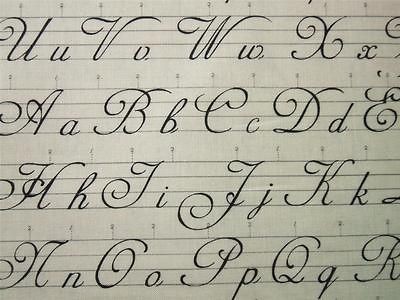 U u V v W w X x
A a B b C c D d E
H h I i J j K k
N n O o P p Q q R